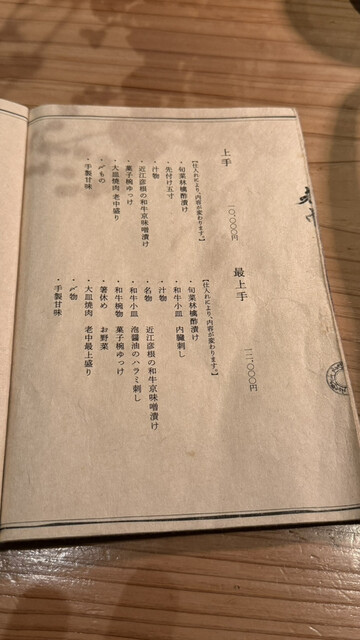 上手
一〇、〇〇〇円
【仕入れにより、内容が変わります。】
・旬菜林檎酢漬け
・先付け五寸
・汁物
・近江彦根の和牛京味噌漬け
・菓子椀ゆっけ
・大皿焼肉 老中盛り
・〆もの
・手製甘味
最上手
一二、〇〇〇円
【仕入れにより、内容が変わります。】
・旬菜林檎酢漬け
・和牛小皿 内臓刺し
・汁物
・名物 近江彦根の和牛京味噌漬け
・和牛小皿 泡醤油のハラミ刺し
・和牛椀物 菓子椀ゆっけ
・箸休め お野菜
・大皿焼肉 老中最上盛り
・〆物
・手製甘味